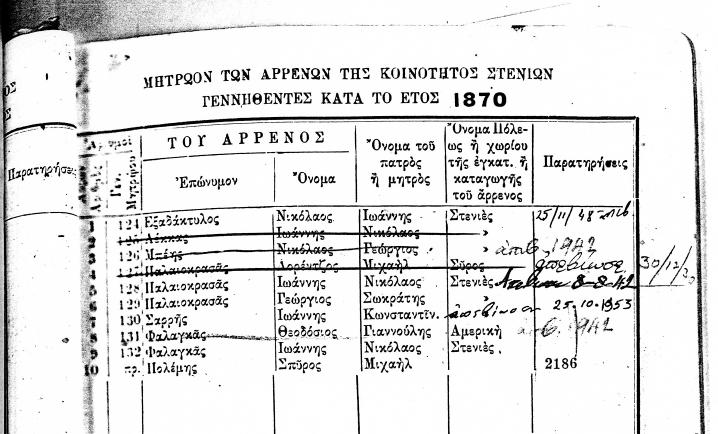 ΜΗΤΡΩΟΝ ΤΩΝ ΑΡΡΕΝΩΝ ΤΗΣ ΚΟΙΝΟΤΗΤΟΣ ΣΤΕΝΙΩΝ
ΓΕΝΝΗΘΕΝΤΕΣ ΚΑΤΑ ΤΟ ΕΤΟΣ 1870
Παρατηρήσεις
ΤΟΥ ΑΡΡΕΝΟΣ
Ἐπώνυμον
Ὄνομα
Ὄνομα τοῦ
πατρὸς
ἢ μητρὸς
Ὄνομα Πόλε-
ως ἢ χωρίου
τῆς ἐγκατ. ἢ
καταγωγῆς
τοῦ ἄρρενος
Παρατηρήσεις
1 124 Ἐξαδάκτυλος Νικόλαος Ἰωάννης Στενιὲς 25/11/48
125 Λέκκας Ἰωάννης Νικόλαος »
126 Μπέης Νικόλαος Γεώργιος » 1942
127 Παλαιοκρασᾶς Λορέντζος Μιχαὴλ Σῦρος 30/12/
128 Παλαιοκρασᾶς Ἰωάννης Νικόλαος Στενιὲς 8-8-42
129 Παλαιοκρασᾶς Γεώργιος Σωκράτης »
130 Σαρρῆς Ἰωάννης Κωνσταντῖν. 25.10.1953
8 131 Φαλαγκᾶς Θεοδόσιος Γιαννούλης Ἀμερικὴ 1942
9 132 Φαλαγκᾶς Ἰωάννης Νικόλαος Στενιὲς
10 πρ. Πολέμης Σπῦρος Μιχαὴλ 2186